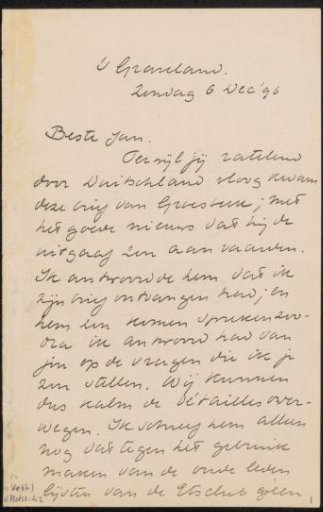 's Graveland.
Zondag 6 Dec '96
Beste Jan.
Terwijl jij ratelend
door Duitschland vloog kwam
deze brief van Groesbeek; met
het goede nieuws dat hij de
uitgaaf zou aanvaarden.
Ik antwoordde hem dat ik
zijn brief ontvangen had, en
hem zou komen spreken zoo-
dra ik antwoord had van
jou op de vragen die ik je
zou stellen. Wij kunnen
dus kalm de détailles over-
wegen. Ik schreef hem alleen
nog dat tegen het gebruik
maken van de oude leden
lijsten van de Etsclub geen